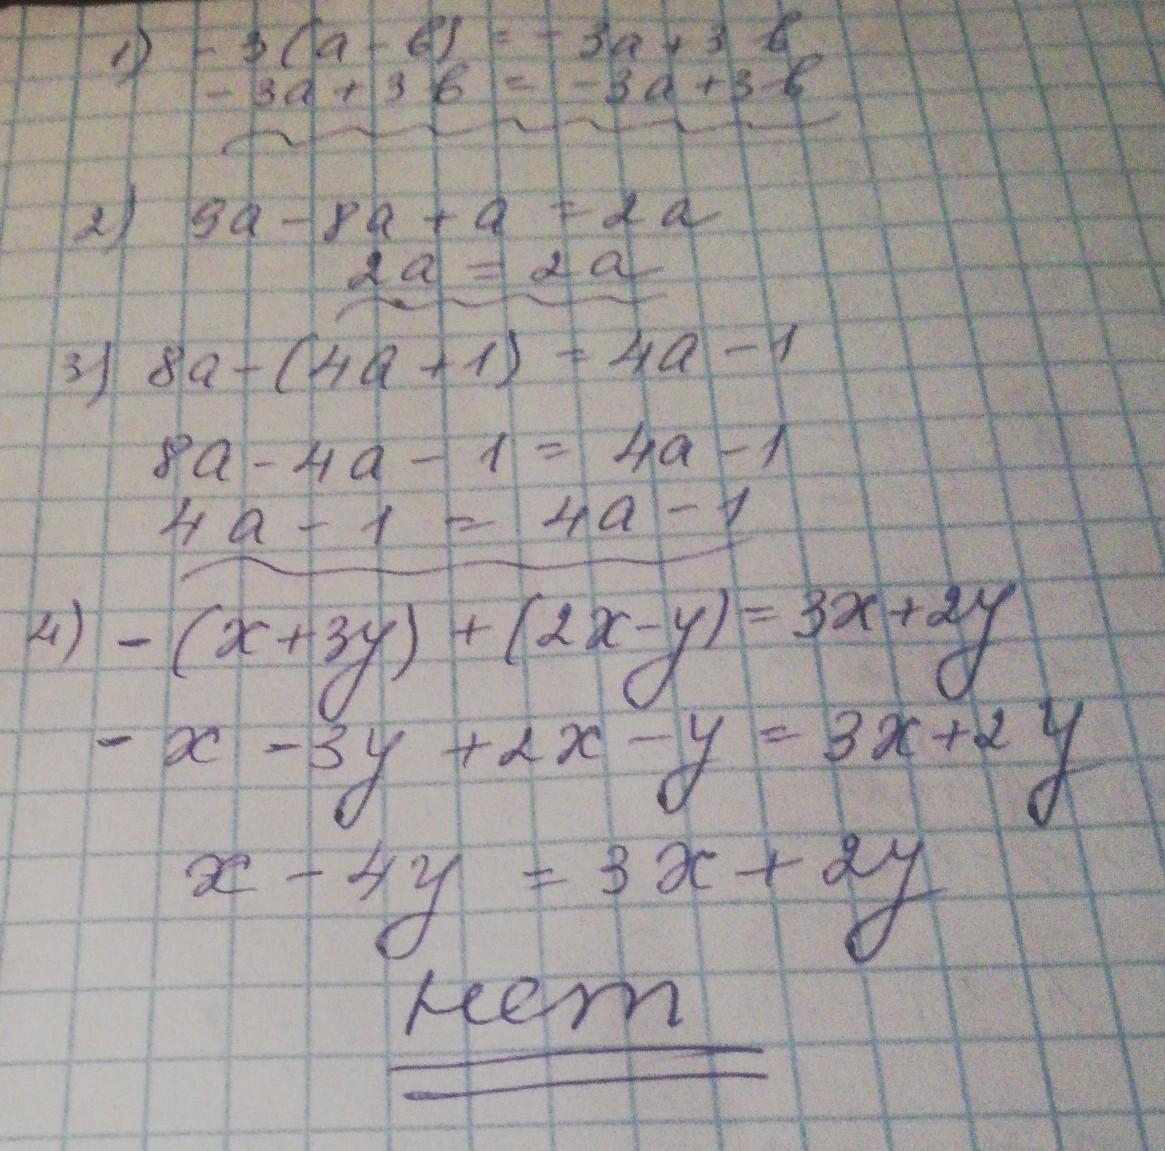 1) - 3(a - b) = - 3a + 3 b
- 3a + 3 b = - 3a + 3 b
2) 9a - 8a + a = 2a
2a = 2a
3) 8a - (4a + 1) = 4a - 1
8a - 4a - 1 = 4a - 1
4a - 1 = 4a - 1
4) - (x + 3y) + (2x - y) = 3x + 2y
- x - 3y + 2x - y = 3x + 2y
x - 4y = 3x + 2y
нет